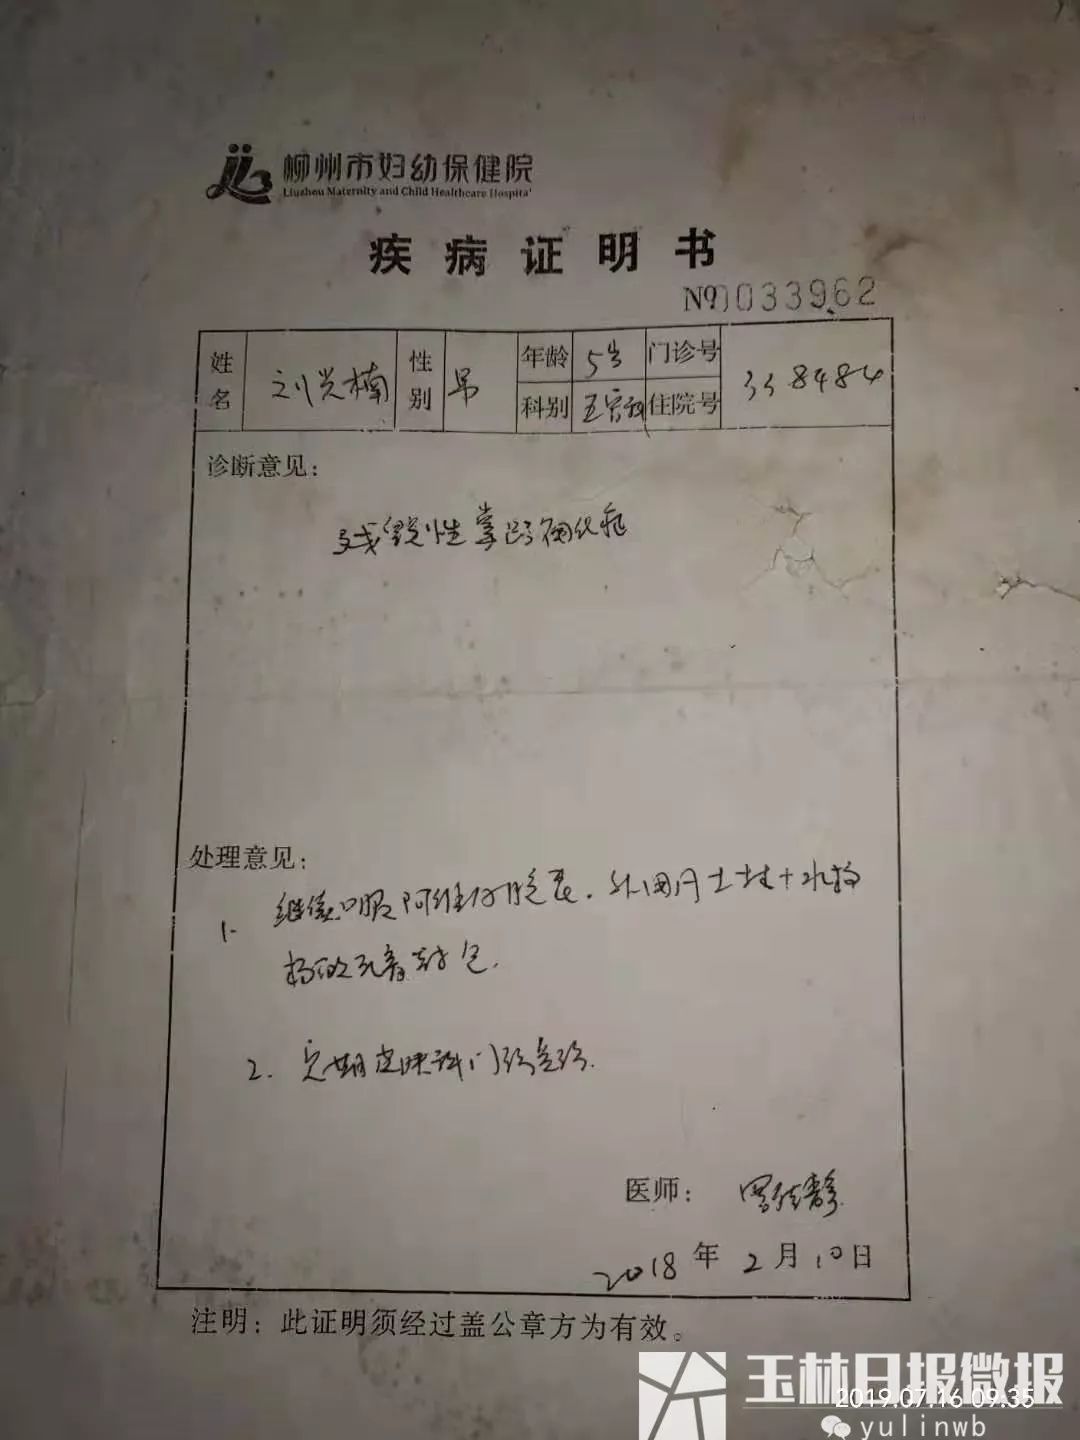 柳州市妇幼保健院
Liuzhou Maternity and Child Healthcare Hospital
疾病证明书
No 0033962
姓名 刘光楠 性别 男 年龄 5岁 门诊号
科别 五官科 住院号 338484
诊断意见：
残毁性掌跖角化症
处理意见：
1. 继续口服阿维A胶囊.外用
封包.
2. 定期皮肤科门诊复诊.
医师：
2018年2月10日
注明：此证明须经过盖公章方为有效。
玉林日报微报
2019.07.16 09:35
yulinwb